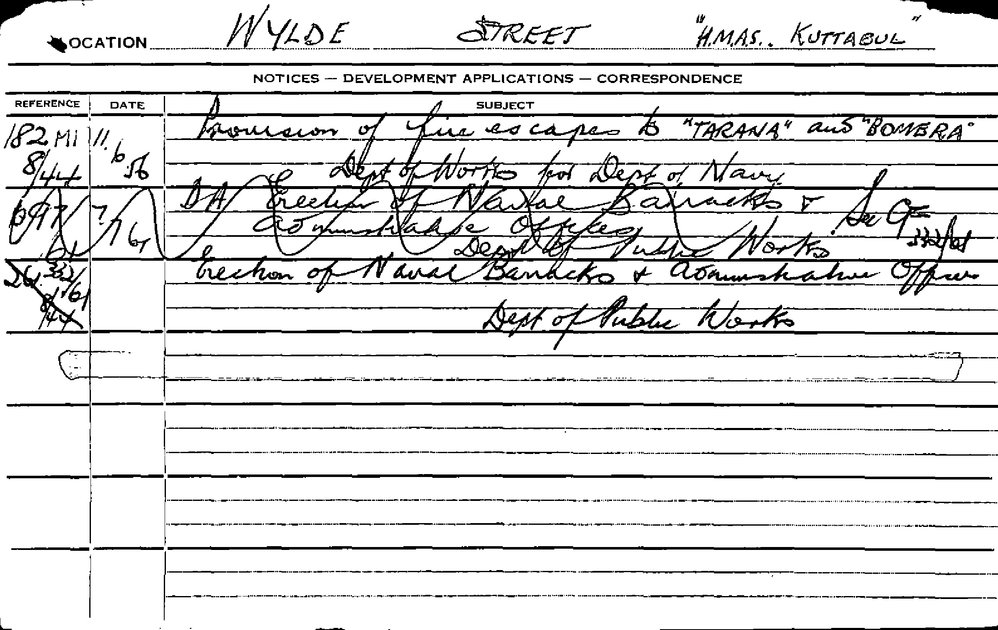 LOCATION WYLDE STREET "H.M.A.S.. KUTTABUL"
NOTICES — DEVELOPMENT APPLICATIONS — CORRESPONDENCE
REFERENCE DATE SUBJECT
182 MI 11. Provision of fire escapes to "TARANA" and "BOMERA"
8/44 6 56 Dept of Works for Dept of Navy.
697 7/7 DA Erection of Naval Barracks & See GF
61 61 Administrative Offices 332/61
Dept of Public Works
332/61 Erection of Naval Barracks & Administrative Offices
8/44
Dept of Public Works